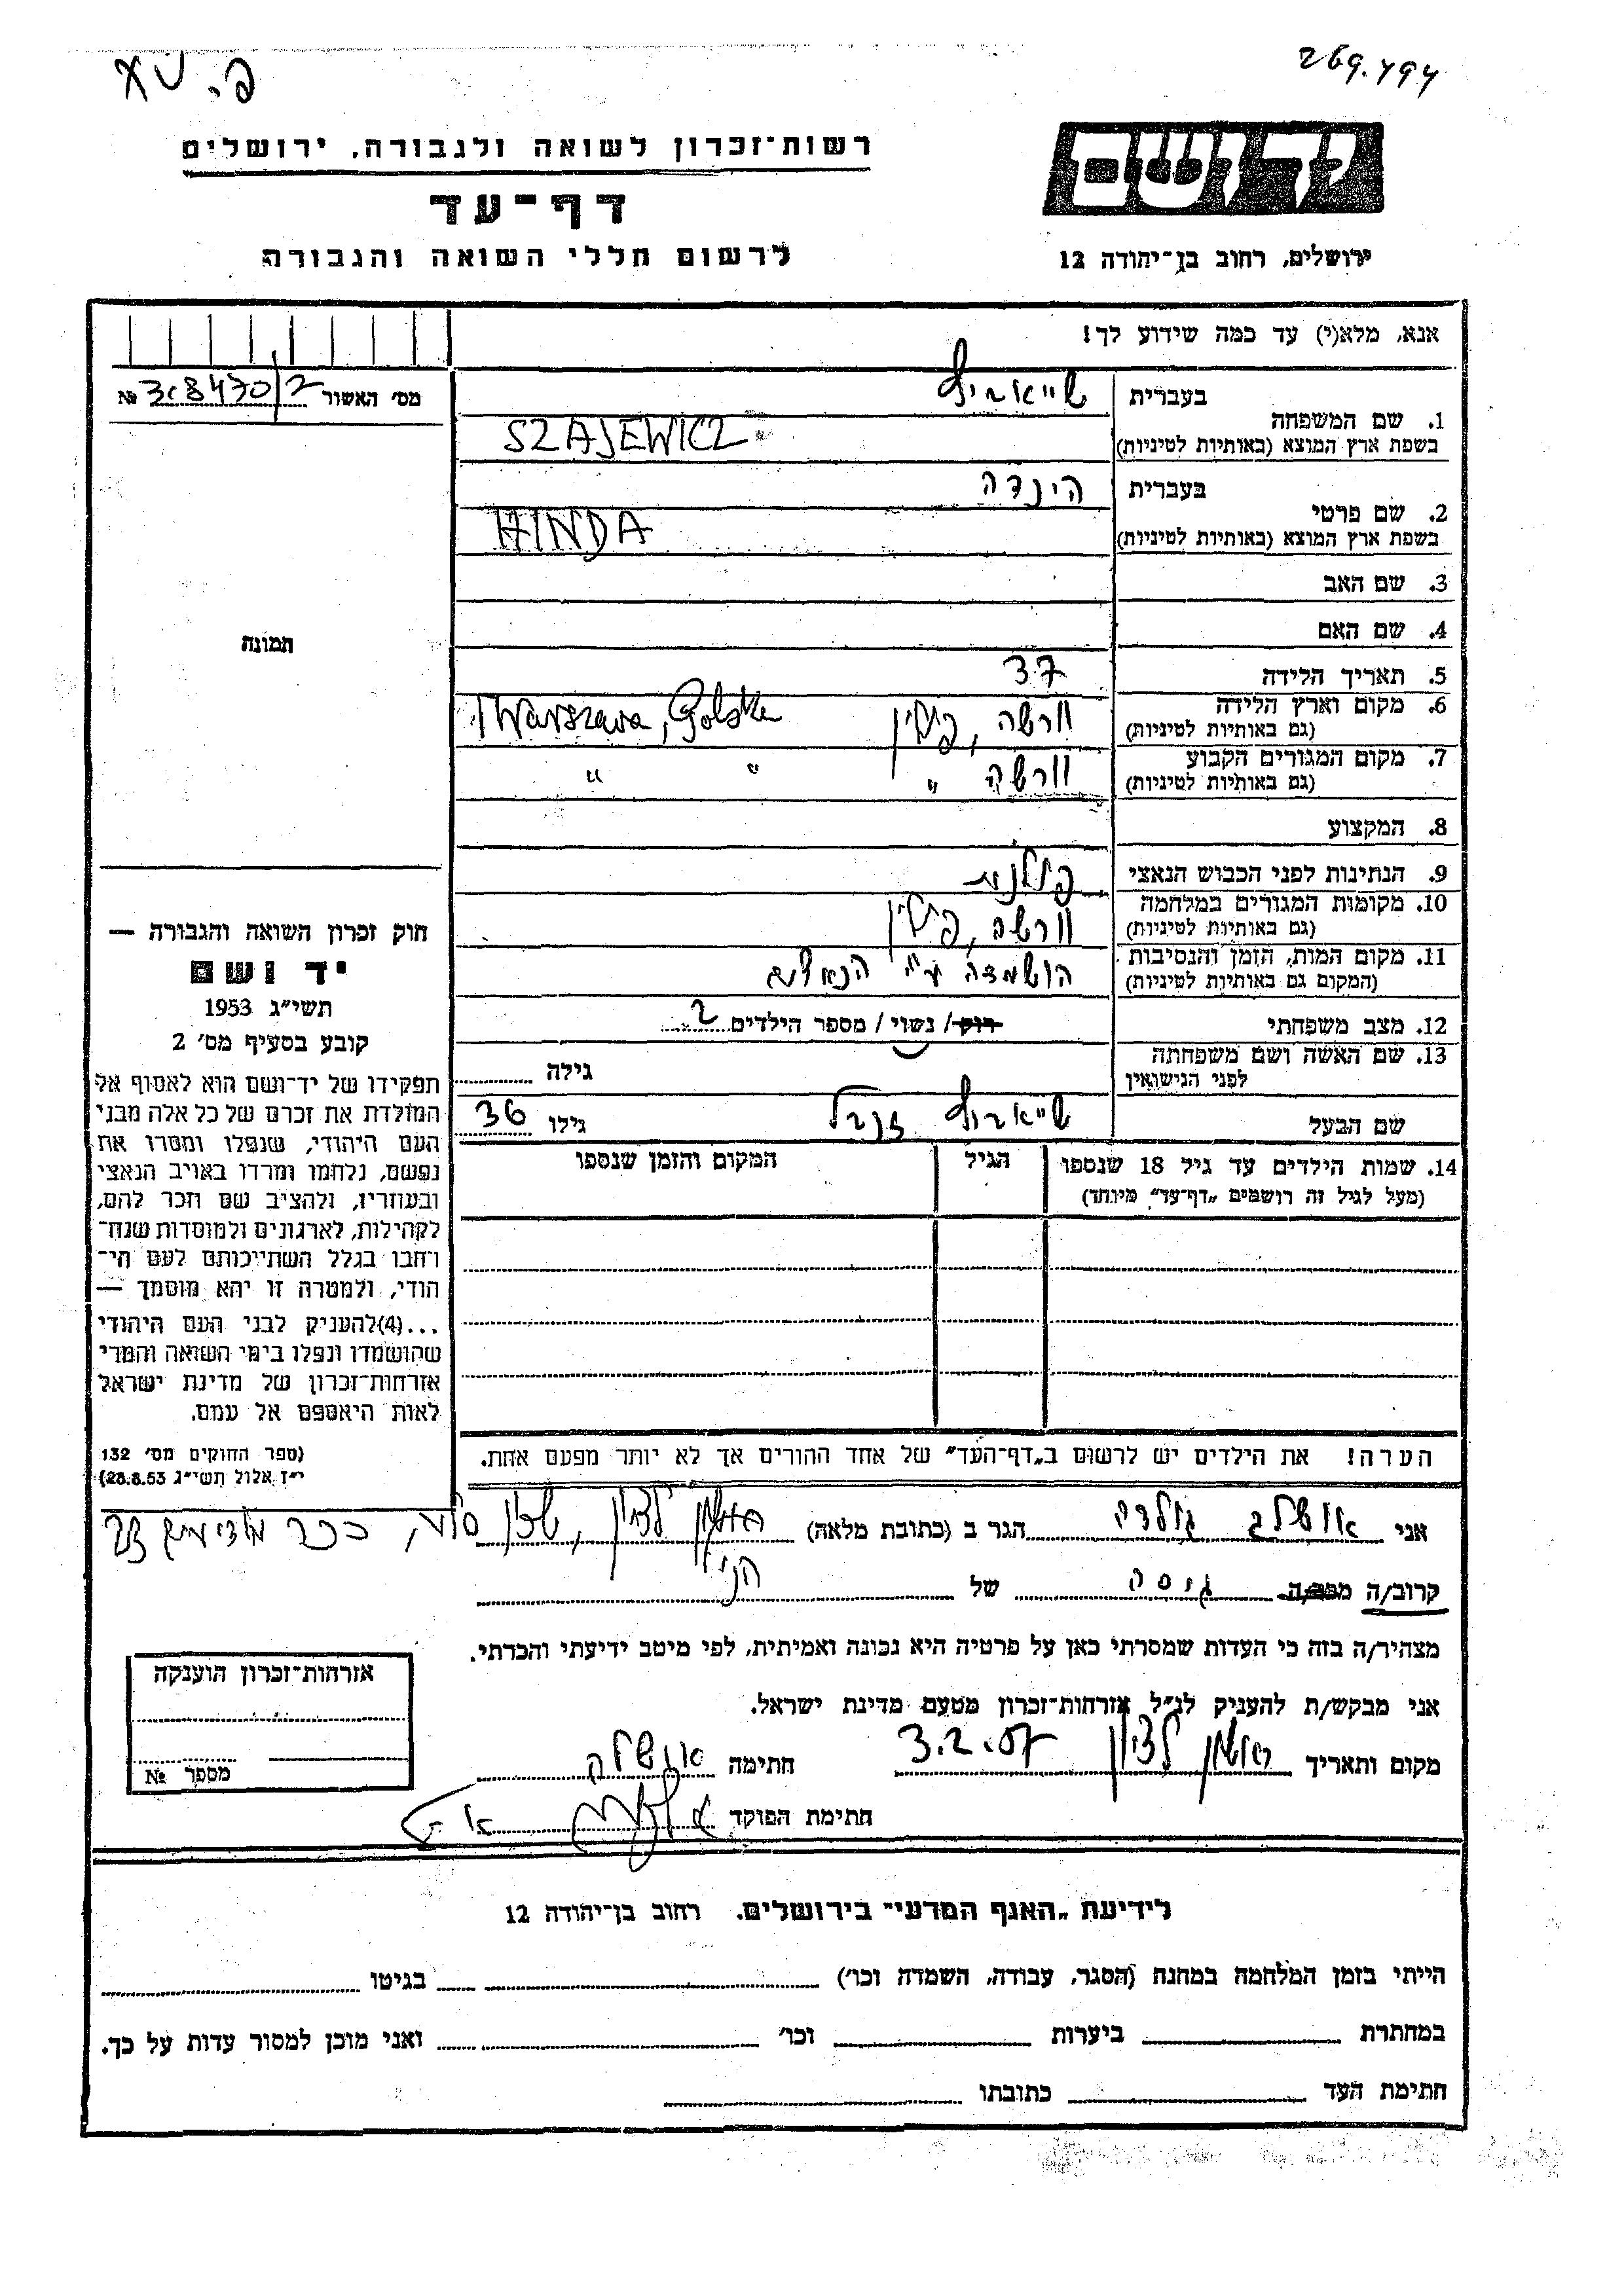 269.494
פ. טא
ידושם
ירושלים, רחוב בן־יהודה 12
רשות־זכרון לשואה ולגבורה, ירושלים
דף־עד
לרשום חללי השואה והגבורה
אנא, מלא(י) עד כמה שידוע לך!
מס׳ האשור 308470/2 №
1. שם המשפחה
בעברית
בשפת ארץ המוצא (באותיות לטיניות)
SZAJEWICZ
2. שם פרטי
בעברית הינדה
בשפת ארץ המוצא (באותיות לטיניות) HINDA
3. שם האב
4. שם האם
5. תאריך הלידה 37
6. מקום וארץ הלידה (גם באותיות לטיניות) וורשה, פולין Warszawa, Polska
7. מקום המגורים הקבוע (גם באותיות לטיניות) וורשה " " "
8. המקצוע
9. הנתינות לפני הכבוש הנאצי פולנית
10. מקומות המגורים במלחמה (גם באותיות לטיניות) וורשה, פולין
11. מקום המות, הזמן והנסיבות (המקום גם באותיות לטיניות) הושמדה ע״י הנאצים
12. מצב משפחתי רוק / נשוי / מספר הילדים 2
13. שם האשה ושם משפחתה לפני הנישואין גילה
שם הבעל גילו 36
14. שמות הילדים עד גיל 18 שנספו (מעל לגיל זה רושמים „דף־עד״ מיוחד)
הגיל
המקום והזמן שנספו
הערה! את הילדים יש לרשום ב„דף־העד״ של אחד ההורים אך לא יותר מפעם אחת.
תמונה
חוק זכרון השואה והגבורה —
יד ושם
תשי״ג 1953
קובע בסעיף מס׳ 2
תפקידו של יד־ושם הוא לאסוף אל
המולדת את זכרם של כל אלה מבני
העם היהודי, שנפלו ומסרו את
נפשם, נלחמו ומרדו באויב הנאצי
ובעוזריו, ולהציב שם וזכר להם,
לקהילות, לארגונים ולמוסדות שנח־
רבו בגלל השתייכותם לעם הי־
הודי, ולמטרה זו יהא מוסמך —
...(4)להעניק לבני העם היהודי
שהושמדו ונפלו בימי השואה והמרי
אזרחות־זכרון של מדינת ישראל
לאות היאספם אל עמם.
(ספר החוקים מס׳ 132
י״ז אלול תשי״ג 28.8.53)
אני גולדה הגר ב (כתובת מלאה) ראשון לציון, שכון
קרוב/ה מכר/ה גיסה של הנ״ל
מצהיר/ה בזה כי העדות שמסרתי כאן על פרטיה היא נכונה ואמיתית, לפי מיטב ידיעתי והכרתי.
אני מבקש/ת להעניק לנ״ל אזרחות־זכרון מטעם מדינת ישראל.
מקום ותאריך ראשון לציון 3.2.57 חתימה
חתימת הפוקד
אזרחות־זכרון הוענקה
מספר №
לידיעת „האגף המדעי״ בירושלים. רחוב בן־יהודה 12
הייתי בזמן המלחמה במחנה (הסגר, עבודה, השמדה וכו׳) בגיטו
במחתרת ביערות וכו׳ ואני מוכן למסור עדות על כך.
חתימת העד כתובתו